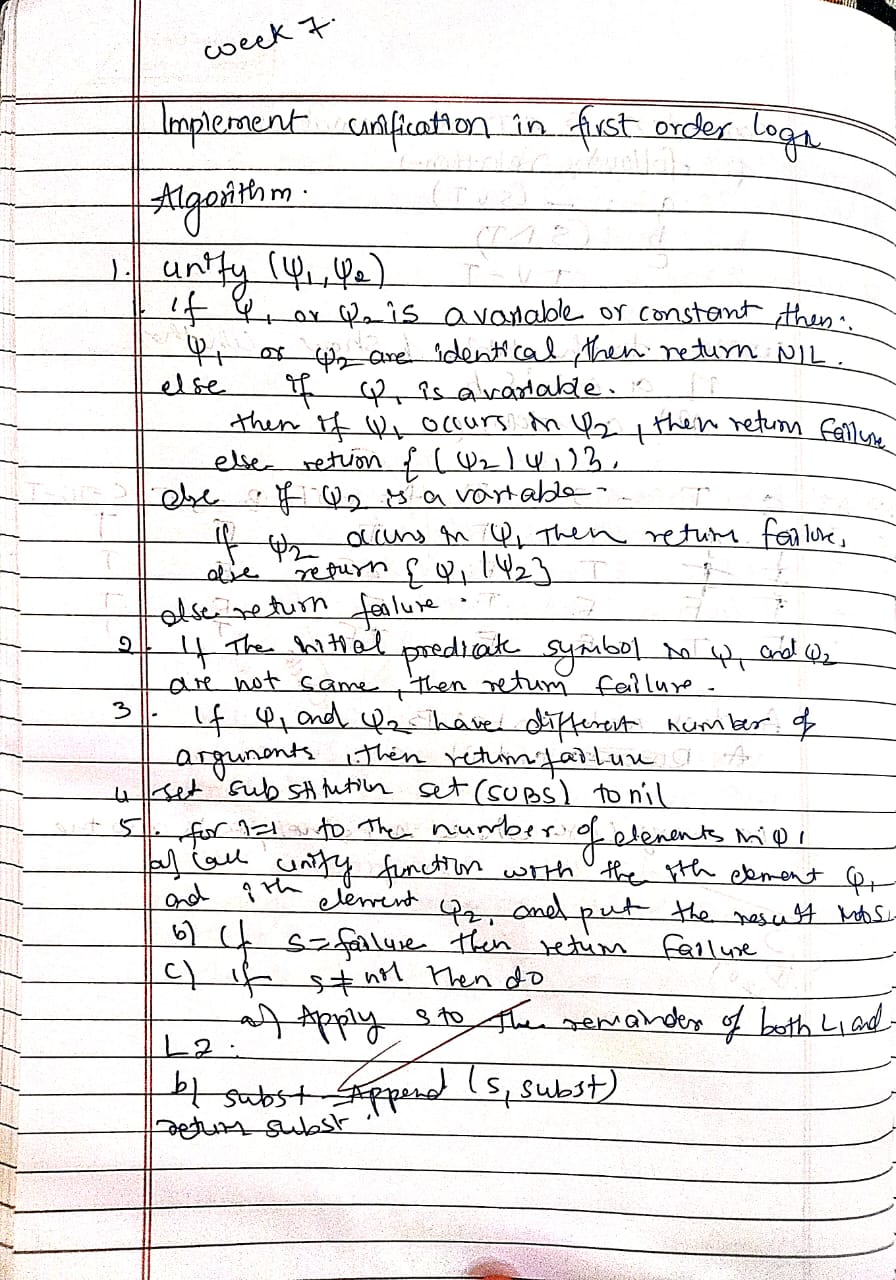 week 7.
Implement unification in first order logic
Algorithm.
1. unify (Ψ1, Ψ2)
If Ψ1 or Ψ2 is a variable or constant, then:
Ψ1 or Ψ2 are identical, then return NIL.
else if Ψ1 is a variable.
then if Ψ1 occurs in Ψ2, then return failure
else return { (Ψ2 | Ψ1)}.
else if Ψ2 is a variable
if Ψ2 occurs in Ψ1 Then return failure,
else return { Ψ1 | Ψ2}
else return failure.
2. If The initial predicate symbol in Ψ1 and Ψ2
are not same, then return failure.
3. If Ψ1 and Ψ2 have different number of
arguments, then return failure
4. set substitution set (SUBS) to nil
5. for i=1 to the number of elements in Ψ1
a) Call unify function with the ith element Ψ1
and ith element Ψ2, and put the result into S.
b) If s=failure then return failure
c) if s≠nil then do
a) Apply s to the remainder of both L1 and
L2.
b) subst = Append (s, subst)
return subst.